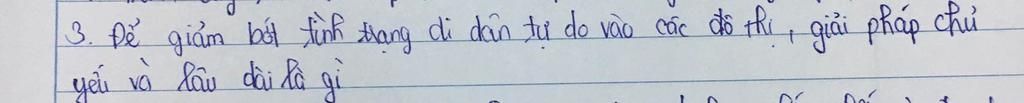 3. Để giảm bớt tình trạng di dân tự do vào các đô thị, giải pháp chủ
yếu và lâu dài là gì